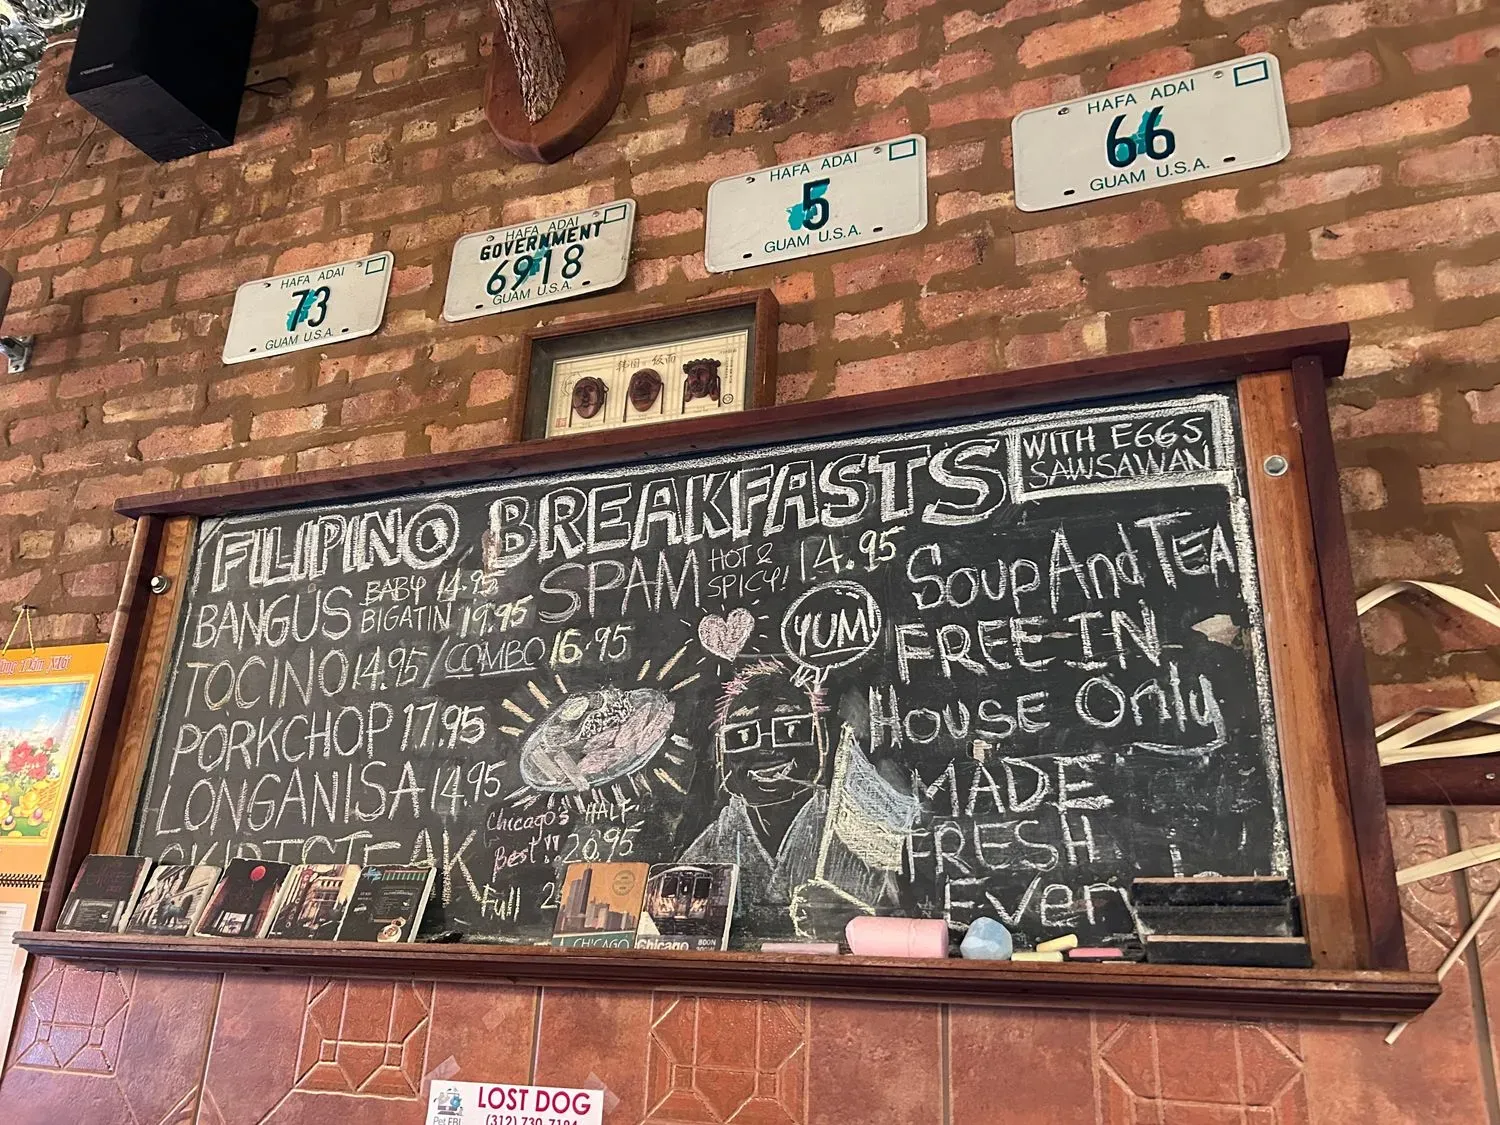 HAFA ADAI
73
GUAM U.S.A.
HAFA ADAI
GOVERNMENT
6918
GUAM U.S.A.
HAFA ADAI
5
GUAM U.S.A.
HAFA ADAI
66
GUAM U.S.A.
FILIPINO BREAKFASTS
WITH EGGS
SAWSAWAN
BANGUS BABY 14.95
BIGATIN 19.95
SPAM HOT & SPICY! 14.95
TOCINO 14.95 / COMBO 16.95
PORKCHOP 17.95
LONGANISA 14.95
SKIRTSTEAK
Chicago's
Best!!
HALF
20.95
Full 2
YUM!
SOUP And TEA
FREE IN
HOUSE Only
MADE
FRESH
Every
CHICAGO
Chicago
LOST DOG
(312) 730-7194
Pet FBI